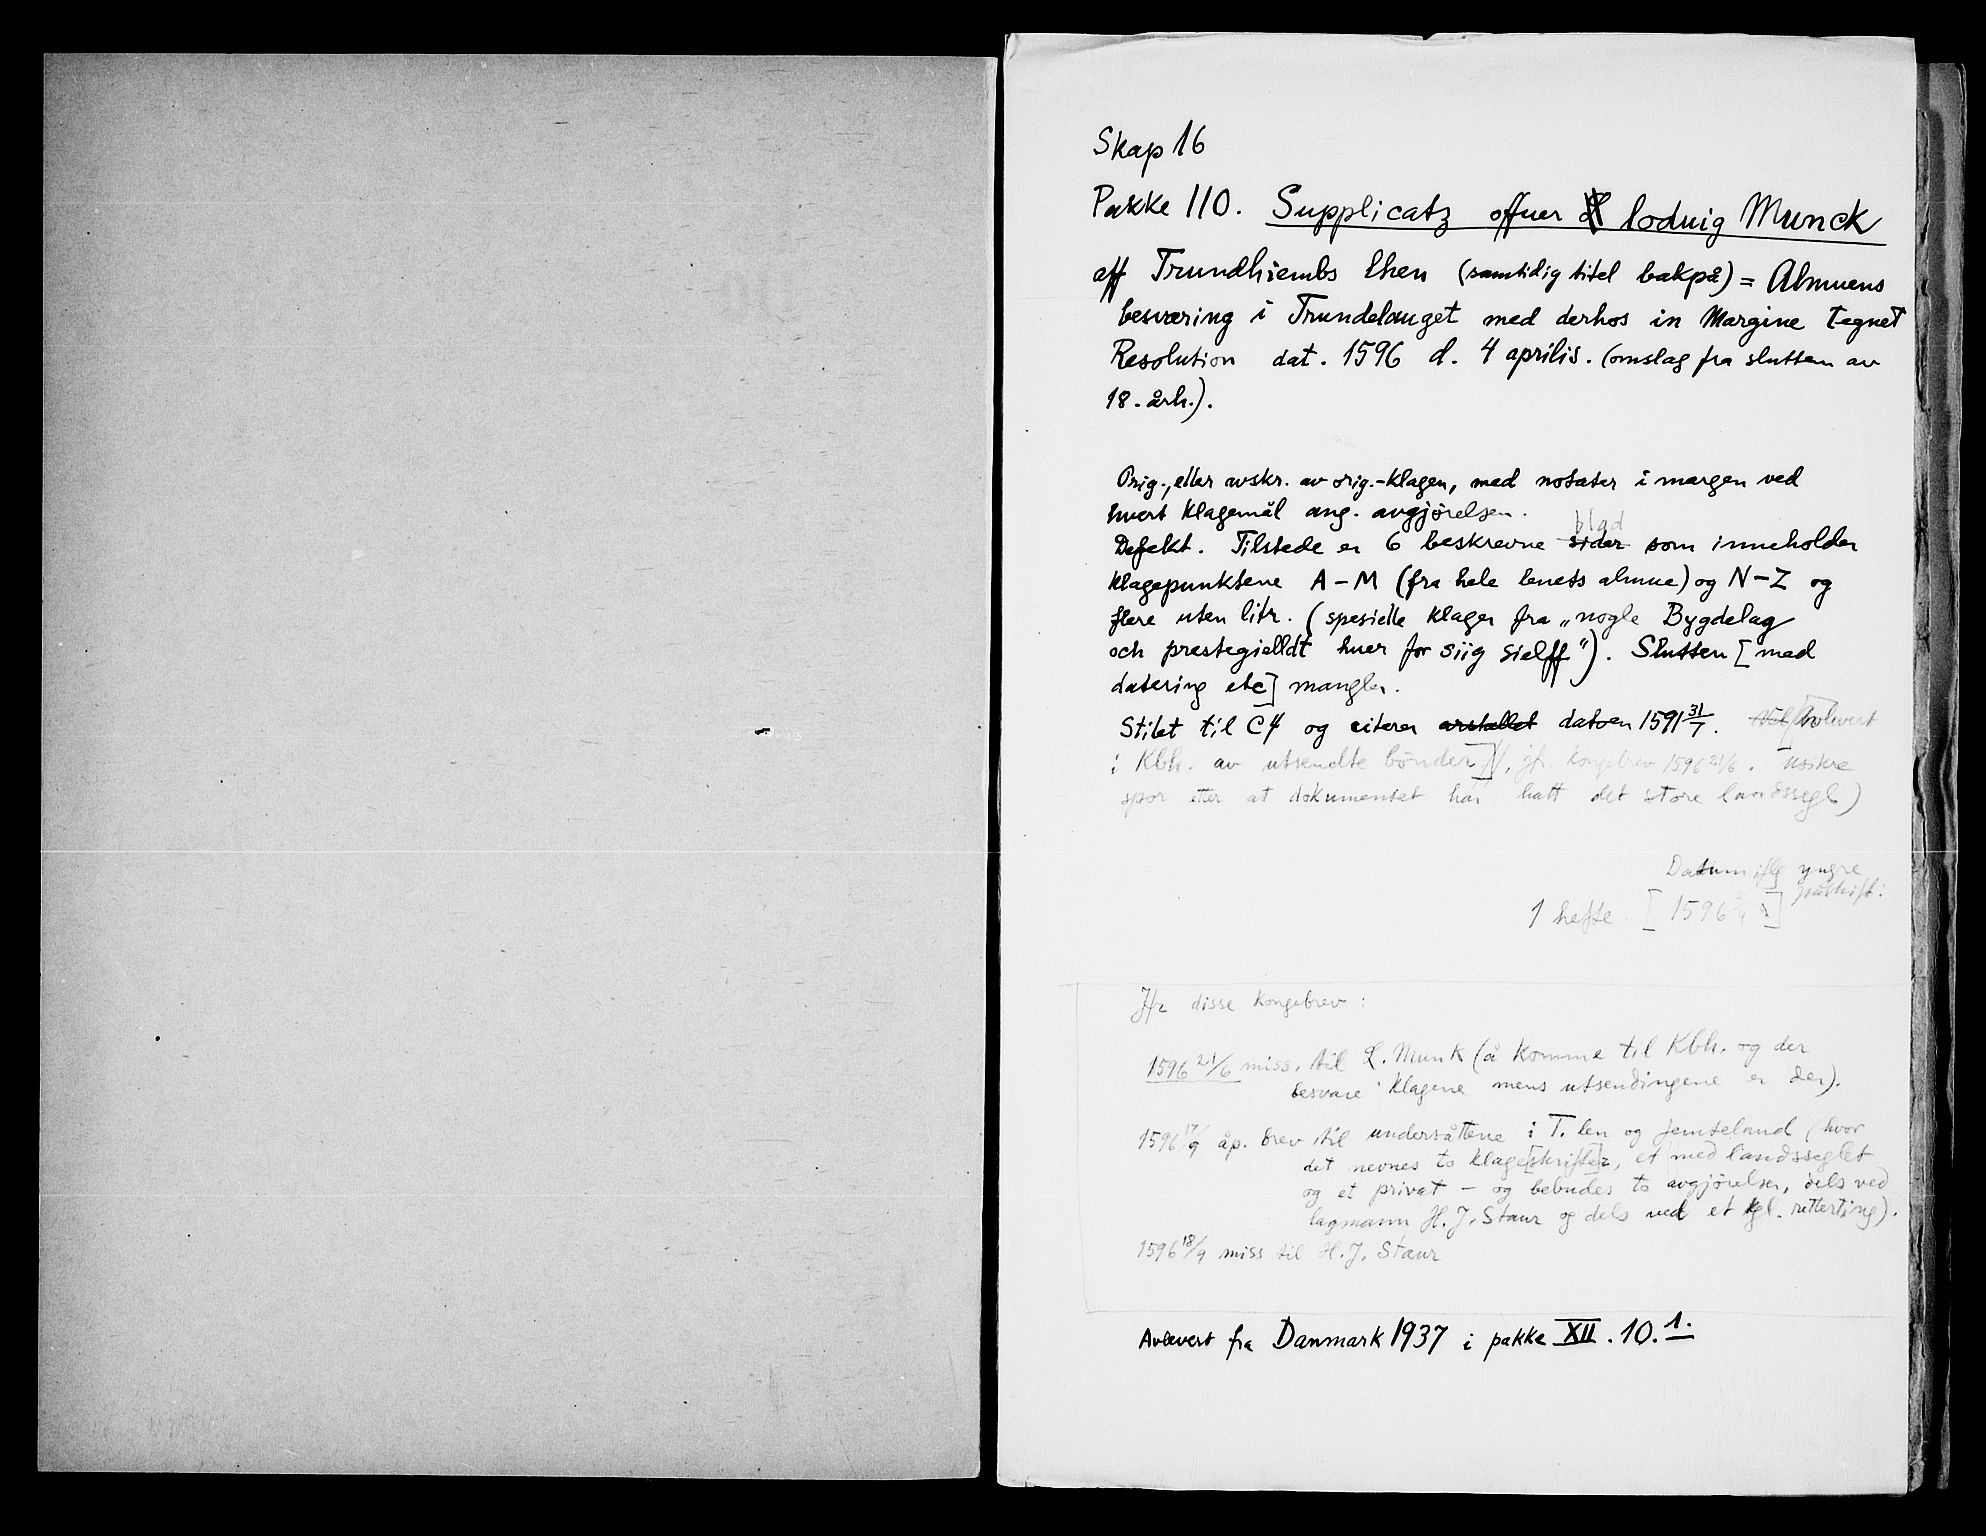 Skap 16
Pakke 110. Supplicatz offuer loduig Munck
aff Trundhiembs lhen (samtidig titel bakpå) = Almuens
besværing i Trundelauget med derhos in Margine tegnet
Resolution dat. 1596 d. 4 aprilis. (omslag fra slutten av
18. årh.).
Orig., eller avskr. av orig.-klagen, med notater i margen ved
hvert klagemål ang. avgjørelsen.
blad
Defekt. Tilstede er 6 beskrevne sider som inneholder
klagepunktene A-M (fra hele lenets almue) og N-Z og
flere uten litr. (spesielle klager fra „nogle Bygdelag
och prestegielldt huer for siig sielff"). Slutten [med
datering etc] mangler.
Stilet til C4 og citerer årstallet datoen 1591 31/7. [Avlevert
i Kbh. av utsendte bønder], jfr. kongebrev 1596 21/6. Usikre
spor etter at dokumentet har hatt det store landssegl)
Datum iflg yngre
påskrift:
1 hefte [1596 4/4]
Jfr disse kongebrev :
1596 21/6 miss. til L. Munk (å komme til Kbh. og der
besvare klagene mens utsendingene er der).
1596 17/9 åp. brev til undersåttene i T. len og Jemteland (hvor
det nevnes to klage[skrifte]r, et med landsseglet
og et privat - og bebudes to avgjørelser, dels ved
lagmann H. J. Staur og dels ved et kgl. retterting).
1596 18/9 miss til H. J. Staur
Avlevert fra Danmark 1937 i pakke XII. 10. 1.